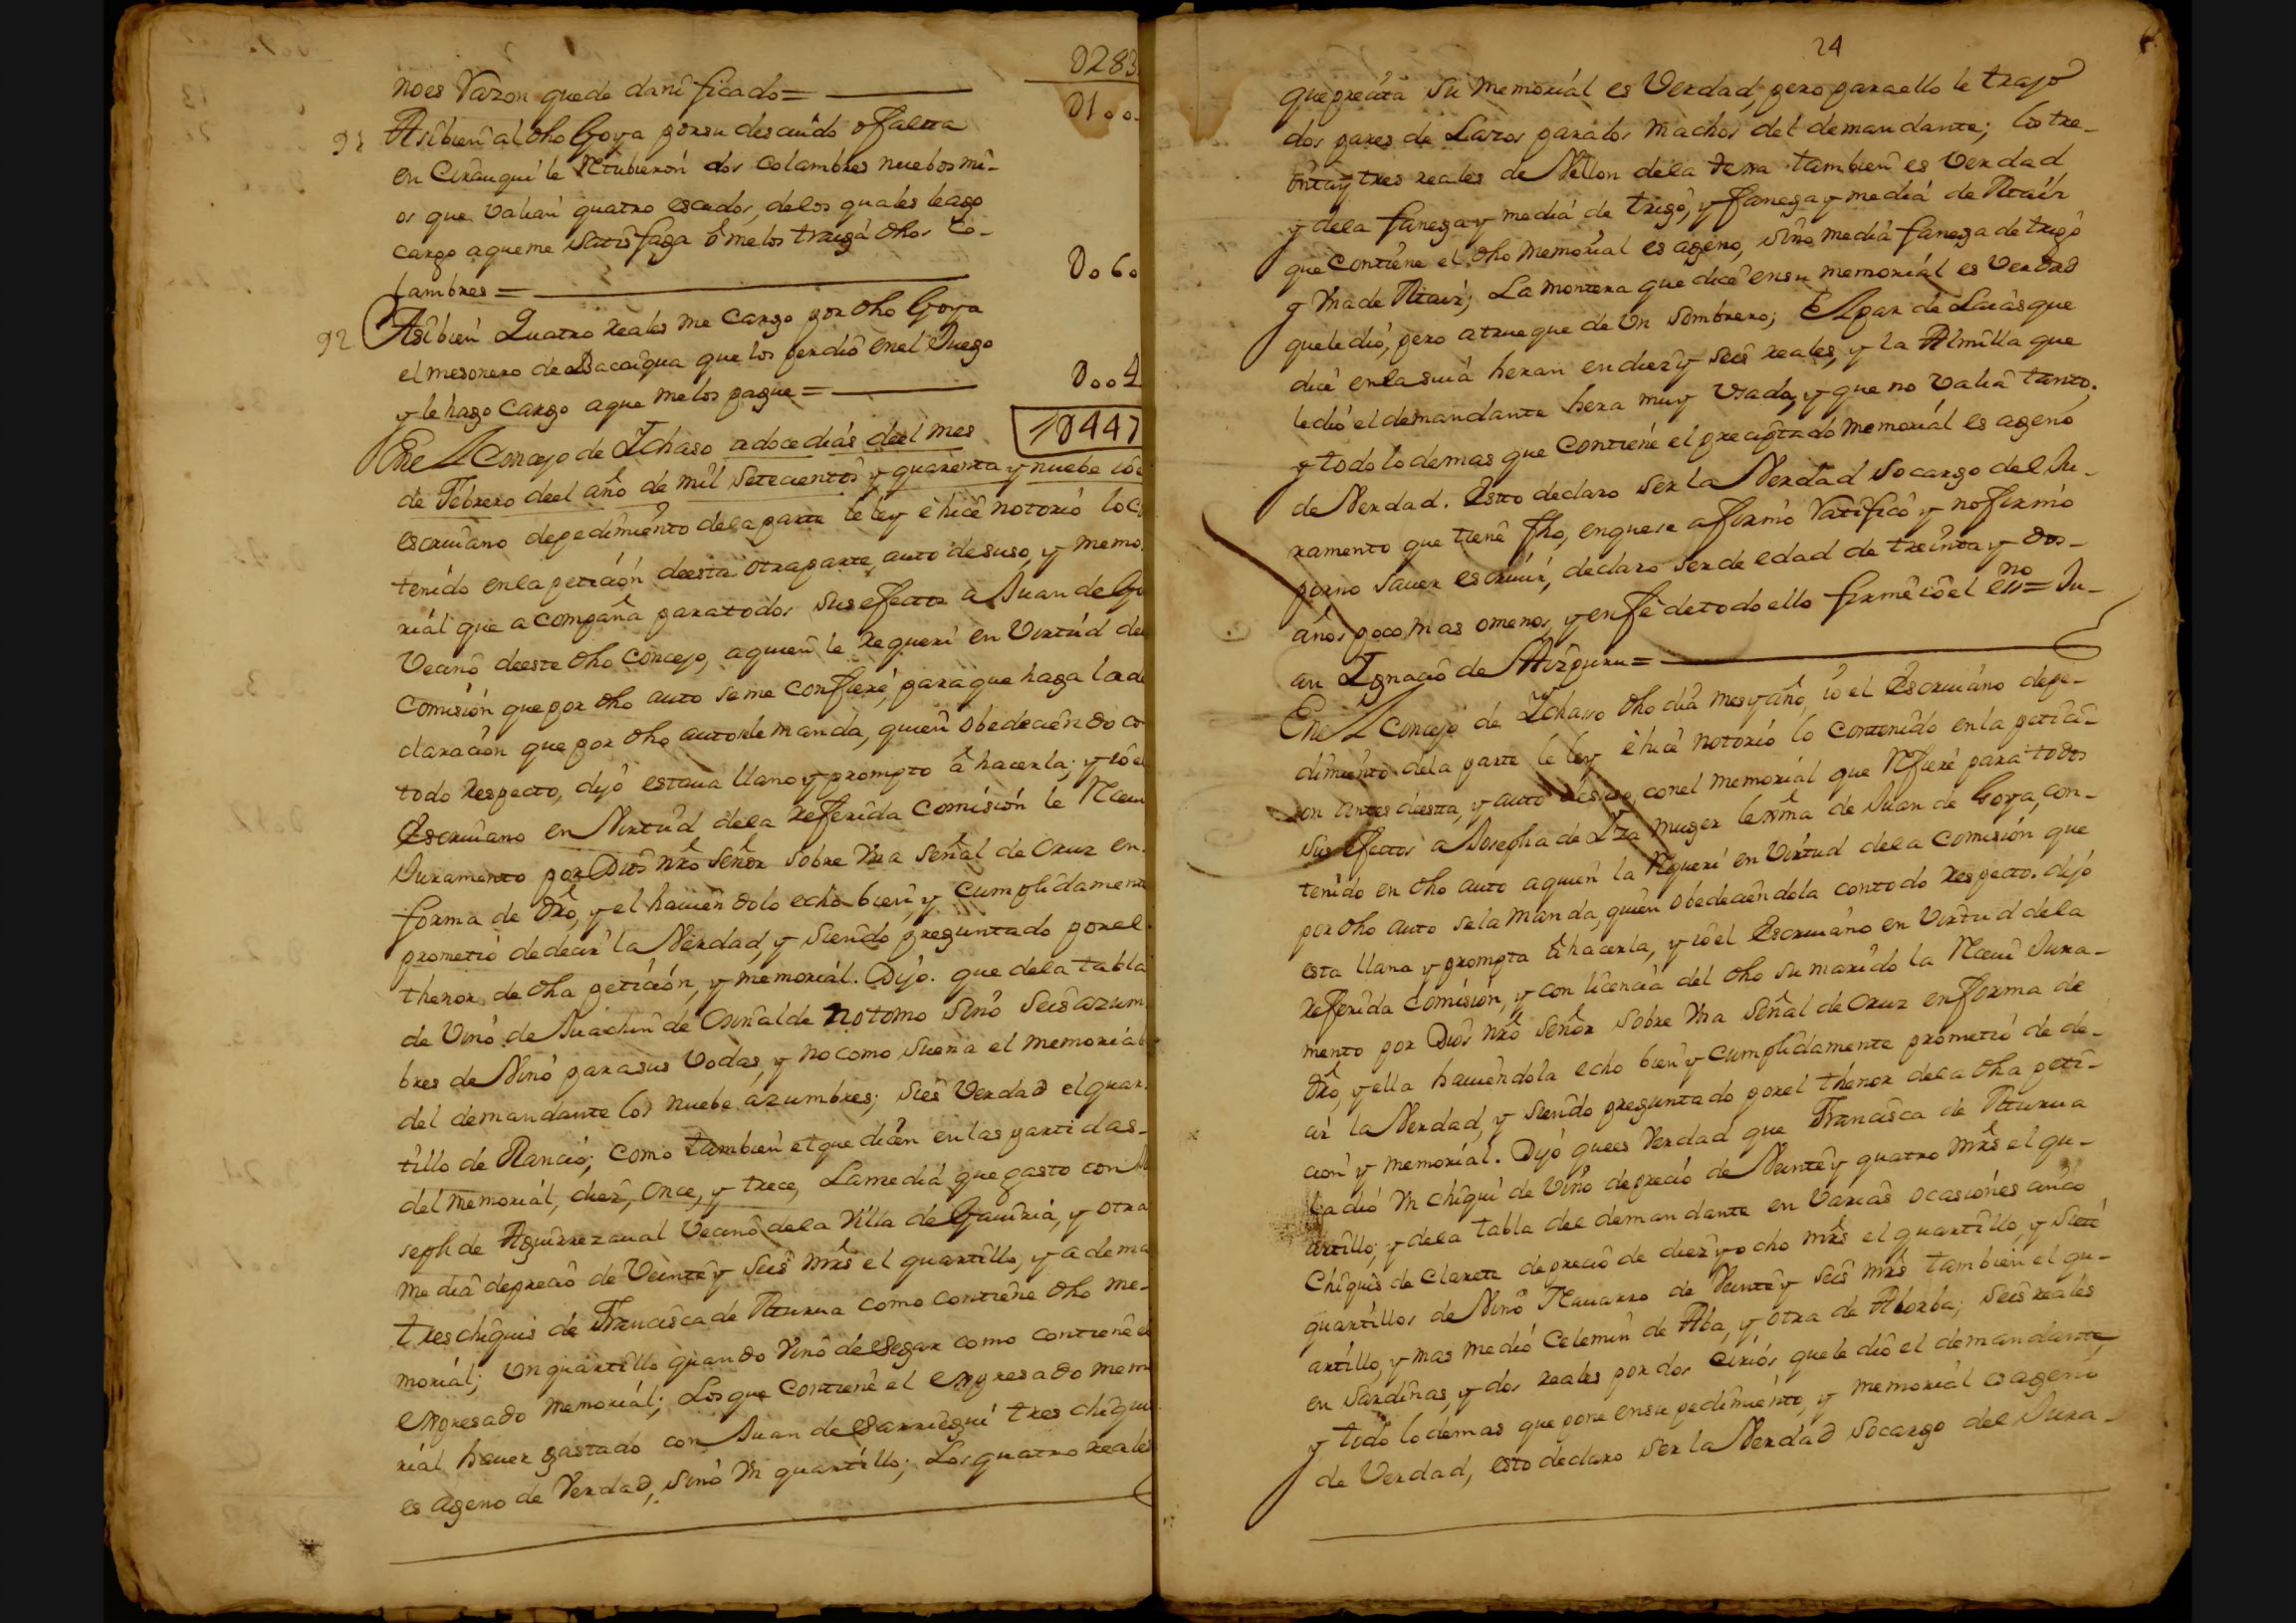 D283
noes Razon quede danificado=
D100
91 Asibien al dho Goya por su descuido o falta
en Cirauqui le Rtubieron dos colambres nuebos mi-
os que valian quatro escudos, delos quales leago
cargo aqueme satisfaga ô melos traiga dhos Co-
lambres= D060
92 Asibien Quatro reales me cargo por dho Goya
el mesonero de Bacaiqua que los perdió enel Juego
y le hago cargo aque melos pague= D004
1D447
Enel Concejo de Ichaso adocedias deel mes
de Febrero deel año de mil setecientos y quarenta y nuebe io el
escriuano depedimiento dela parte le ley e hice notorio lo co
tenido enla petición deesta otraparte, auto desuso, y memo
rial que acompaña paratodos sus efectos a Juan de Go
Vecino deeste dho Concejo, aquien le requeri en Virtud de
Comisión que por dho auto seme confiere, paraque haga la de
claración que por dho auto sele manda, quien obedeciendo co
todo respecto, dijo estaua llano y prompto â hacerla; y io el
Escriuano en Virtud dela referida comisión le Receui
Juramento por Dios nrô Señor sobre Vna señal de Cruz en
forma de drô, y el hauiendolo echo bien, y cumplidament
prometió dedecir la Verdad, y siendo preguntado porel
thenor de dha petición, y memorial. Dijo. que dela tabla
de Vino de Juachin de Osinalde no tomo sino seis azum
bres de Vino para sus Vodas, y no como suena el memorial
del demandante los nuebe azumbres; sies Verdad el quar
tillo de Rancio; como tambien el que dicen en las partidas-
del memorial, diez, Once, y trece, La media que gasto con Jo
seph de Aguirrezaual Vecino dela Villa de Gauiria, y otra
media deprecio de Veinte y seis mrs el quartillo, y adema
treschiquis de Francisca de Yturua como contiene dho me-
morial; Un quartillo quando Vino de segar como contiene el
expresado memorial; Los que contiene el expresado memo
rial hauer gastado con Juan de Sarriegui tres chiquis
es ageno de Verdad, sino Vn quartillo; Los quatro reales
24
queprecita su memorial es Verdad, pero paraello le trajo
dos pares de Lazos paralos machos del demandante; los tre-
intay tres reales de Vellon dela tierra tambien es verdad
y dela fanega y media de trigo, y fanega y media de Maiz
que contiene el dho memorial es ageno, sino media fanega de trigo
y Vna de Maiz; La montera que dice ensu memorial es Verdad
quele dió, pero atrueque de Vn sombrero; El par de Luias que
dice enla suia heran en diez y seis reales, y la Almilla que
ledió el demandante hera muy Vsada, y que no valia tanto;
y todo lo demas que contiene el precitado memorial es ageno
de Verdad. Esto declaro ser la Verdad socargo del Ju-
ramento que tiene fho, enquese afirmó Ratificó y nofirmó
porno sauer escriuir, declaro serde edad de treinta y dos-
años poco mas omenos, y enfe detodo ello firmé io el esno= Ju-
an Ignacio de Aizpuru=
Enel Concejo de Ichasso dho dia mes y año, io el Escriuano depe-
dimiento dela parte le ley e hice notorio lo contenido enla petici-
on antes deesta, y auto desuso, conel memorial que Rfiere para todos
sus efectos a Josepha de Iza muger lexma de Juan de Goya, con-
tenido en dho auto aquien la Rqueri en Virtud dela comisión que
por dho auto sela manda, quien obedeciendola contodo respecto. dijo
esta llana y prompta â hacerla, y io el Escriuano en Virtud dela
referida comisión, y con licencia del dho su marido la Receui Jura-
mento por Dios nrô Señor sobre Vna señal de Cruz enforma de
drô, y ella hauiendola echo bien y cumplidamente prometió de de-
cir la Verdad, y siendo preguntado porel thenor dela dha peti-
cion y memorial. Dijo quees Verdad que Francisca de Yturua
ladió Vn chiqui de Vino deprecio de Veintey quatro mrs el qu-
artillo; y dela tabla del demandante en Varias ocasiones cinco
Chiquis de clarete deprecio de diez y ocho mrs el quartillo, y siete
quartillos de Vino Nauarro de Veintey seis mrs tambien el qu-
artillo, y mas medio Celemin de Aba, y otra de Alorba; seis reales
en sardinas, y dos reales por dos cirios quele dió el demandante,
y todo lo demas que pone ensu pedimiento, y memorial es ageno
de Verdad, esto declaro ser la Verdad socargo del Jura-